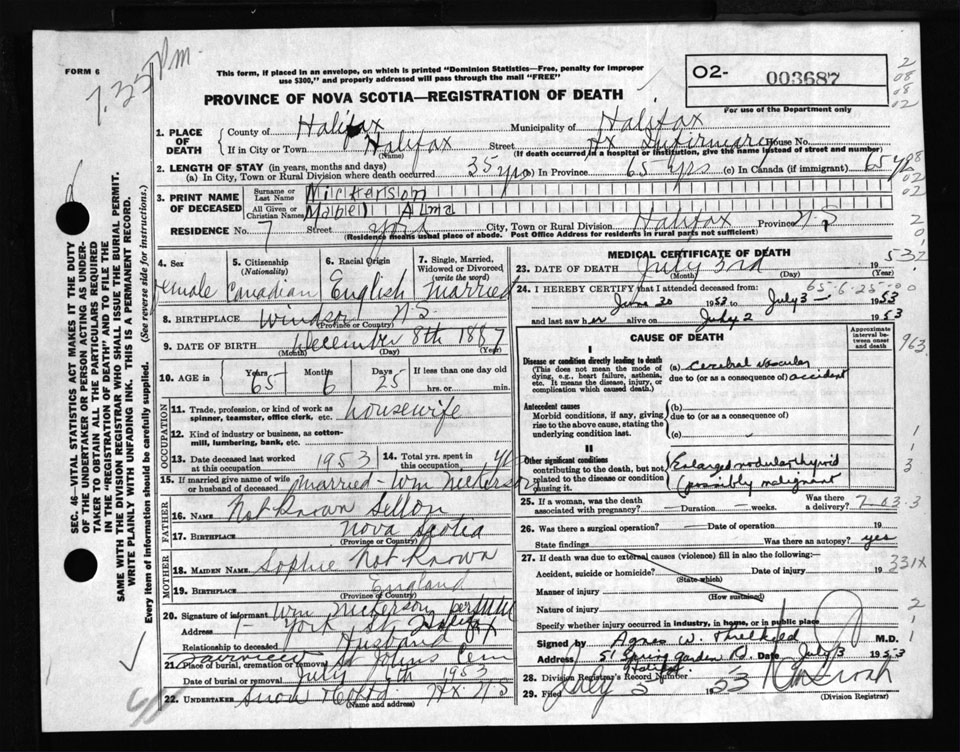 FORM 6
7.35 PM
This form, if placed in an envelope, on which is printed "Dominion Statistics—Free, penalty for improper
use $300," and properly addressed will pass through the mail "FREE"
02- 003687
PROVINCE OF NOVA SCOTIA—REGISTRATION OF DEATH
For use of the Department only
1. PLACE OF DEATH
County of Halifax Municipality of Halifax
If in City or Town Halifax Street Hx Infirmary House No.
(Name) (If death occurred in a hospital or institution, give the name instead of street and number)
2. LENGTH OF STAY (in years, months and days)
(a) In City, Town or Rural Division where death occurred 35 yrs (b) In Province 65 yrs (c) In Canada (if immigrant) 65 yrs
3. PRINT NAME OF DECEASED
Surname or Last Name Nickerson
All Given or Christian Names Mabel Alma
RESIDENCE No. 7 Street York City, Town or Rural Division Halifax Province N.S.
(Residence means usual place of abode. Post Office Address for residents in rural parts not sufficient)
4. Sex Female
5. Citizenship (Nationality) Canadian
6. Racial Origin English
7. Single, Married, Widowed or Divorced (write the word) Married
8. BIRTHPLACE Windsor N.S.
(Province or Country)
9. DATE OF BIRTH December 8th 1887
(Month) (Day) (Year)
10. AGE Years 65 Months 6 Days 25 If less than one day old
hrs. or min.
OCCUPATION
11. Trade, profession, or kind of work as spinner, teamster, office clerk, etc. housewife
12. Kind of industry or business, as cotton-mill, lumbering, bank, etc.
13. Date deceased last worked at this occupation 1953 14. Total yrs. spent in this occupation 40
15. If married give name of wife or husband of deceased married - Wm Nickerson
FATHER
16. NAME Not Known Sellon
17. BIRTHPLACE Nova Scotia
(Province or Country)
MOTHER
18. MAIDEN NAME Sophie Not Known
19. BIRTHPLACE England
(Province or Country)
20. Signature of informant Wm Nickerson per
Address 7 - York St. Halifax
Relationship to deceased Husband
21. Place of burial, cremation or removal Fairview St Johns Cem
Date of burial or removal July 1953
22. UNDERTAKER Snow & Co Ltd Hx. N.S.
(Name and address)
MEDICAL CERTIFICATE OF DEATH
23. DATE OF DEATH July 3rd 1953
(Month) (Day) (Year)
24. I HEREBY CERTIFY that I attended deceased from: 65-6-25-00
June 20 1953 to July 3 - 1953
and last saw her alive on July 2 1953
CAUSE OF DEATH
Approximate interval between onset and death
I
Disease or condition directly leading to death
(This does not mean the mode of dying, e.g., heart failure, asthenia, etc. It means the disease, injury, or complication which caused death.
(a) Cerebral vascular
due to (or as a consequence of) accident
Antecedent causes
Morbid conditions, if any, giving rise to the above cause, stating the underlying condition last.
(b)
due to (or as a consequence of)
(c)
II
Other significant conditions
contributing to the death, but not related to the disease or condition causing it.
Enlarged nodular thyroid
(possibly malignant
25. If a woman, was the death associated with pregnancy? —Duration — weeks. Was there a delivery?
26. Was there a surgical operation? —Date of operation 19
State findings Was there an autopsy? yes
27. If death was due to external causes (violence) fill in also the following:—
Accident, suicide or homicide? Date of injury 19
(State which)
331X
Manner of injury
(How sustained)
Nature of injury
Specify whether injury occurred in industry, in home, or in public place
Signed by Agnes W. Threlkeld M.D.
Address 51 Spring Garden Rd. Date July 3 1953
Halifax
28. Division Registrar's Record Number
29. Filed July 5 1953
(Division Registrar)
SEC. 46 VITAL STATISTICS ACT MAKES IT THE DUTY
OF THE UNDERTAKER OR PERSON ACTING AS UNDER-
TAKER TO OBTAIN ALL THE PARTICULARS REQUIRED
IN THE "REGISTRATION OF DEATH" AND TO FILE THE
SAME WITH THE DIVISION REGISTRAR WHO SHALL ISSUE THE BURIAL PERMIT.
WRITE PLAINLY WITH UNFADING INK. THIS IS A PERMANENT RECORD.
Every item of information should be carefully supplied. (See reverse side for instructions.)